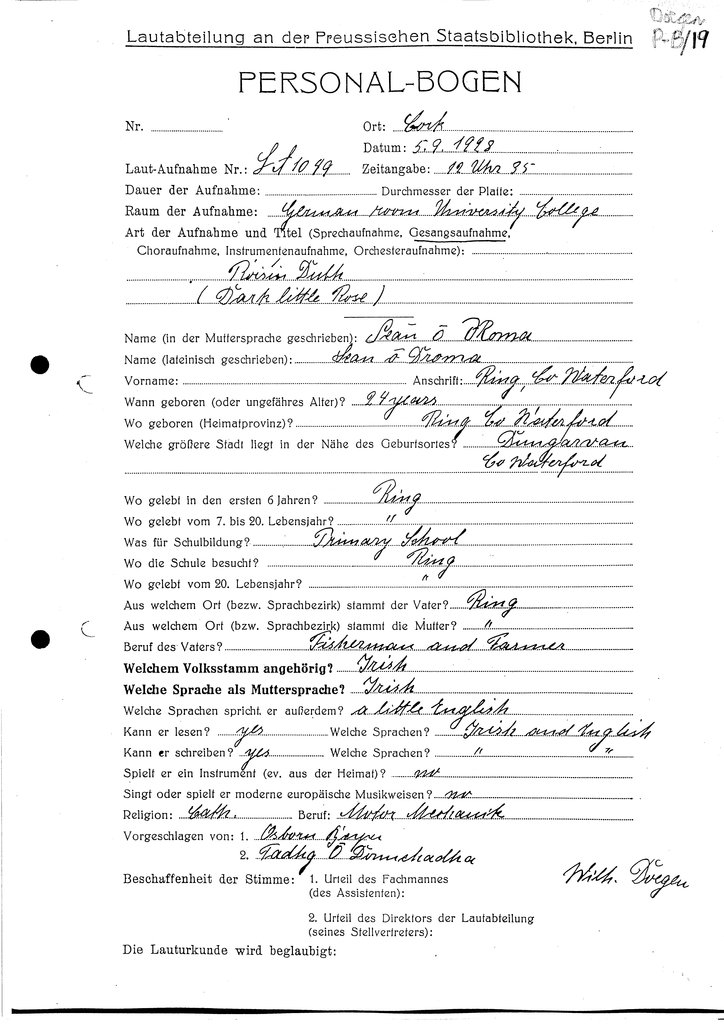 Doegen
P-B/19
Lautabteilung an der Preussischen Staatsbibliothek, Berlin
PERSONAL-BOGEN
Nr. Ort: Cork
Datum: 5.9.1928
Laut-Aufnahme Nr.: LA 1099 Zeitangabe: 12 Uhr 35
Dauer der Aufnahme: Durchmesser der Platte:
Raum der Aufnahme: German room University College
Art der Aufnahme und Titel (Sprechaufnahme, Gesangsaufnahme,
Choraufnahme, Instrumentenaufnahme, Orchesteraufnahme):
Róisín Dubh
(Dark little Rose)
Name (in der Muttersprache geschrieben): Seán ó
Name (lateinisch geschrieben): Sean ó Droma
Vorname: Anschrift: Ring, Co Waterford
Wann geboren (oder ungefähres Alter)? 24 years
Wo geboren (Heimatprovinz)? Ring Co Waterford
Welche größere Stadt liegt in der Nähe des Geburtsortes? Dungarvan
Co Waterford
Wo gelebt in den ersten 6 Jahren? Ring
Wo gelebt vom 7. bis 20. Lebensjahr? "
Was für Schulbildung? Primary School
Wo die Schule besucht? Ring
Wo gelebt vom 20. Lebensjahr? "
Aus welchem Ort (bezw. Sprachbezirk) stammt der Vater? Ring
Aus welchem Ort (bzw. Sprachbezirk) stammt die Mutter? "
Beruf des Vaters? Fisherman and Farmer
Welchem Volksstamm angehörig? Irish
Welche Sprache als Muttersprache? Irish
Welche Sprachen spricht er außerdem? a little English
Kann er lesen? yes Welche Sprachen? Irish and English
Kann er schreiben? yes Welche Sprachen? " "
Spielt er ein Instrument (ev. aus der Heimat)? no
Singt oder spielt er moderne europäische Musikweisen? no
Religion: Cath. Beruf: Motor Mechanik
Vorgeschlagen von: 1. Osborn
2. Tadhg Ó Donnchadha
Beschaffenheit der Stimme: 1. Urteil des Fachmannes
(des Assistenten):
Wilh. Doegen
2. Urteil des Direktors der Lautabteilung
(seines Stellvertreters):
Die Lauturkunde wird beglaubigt: